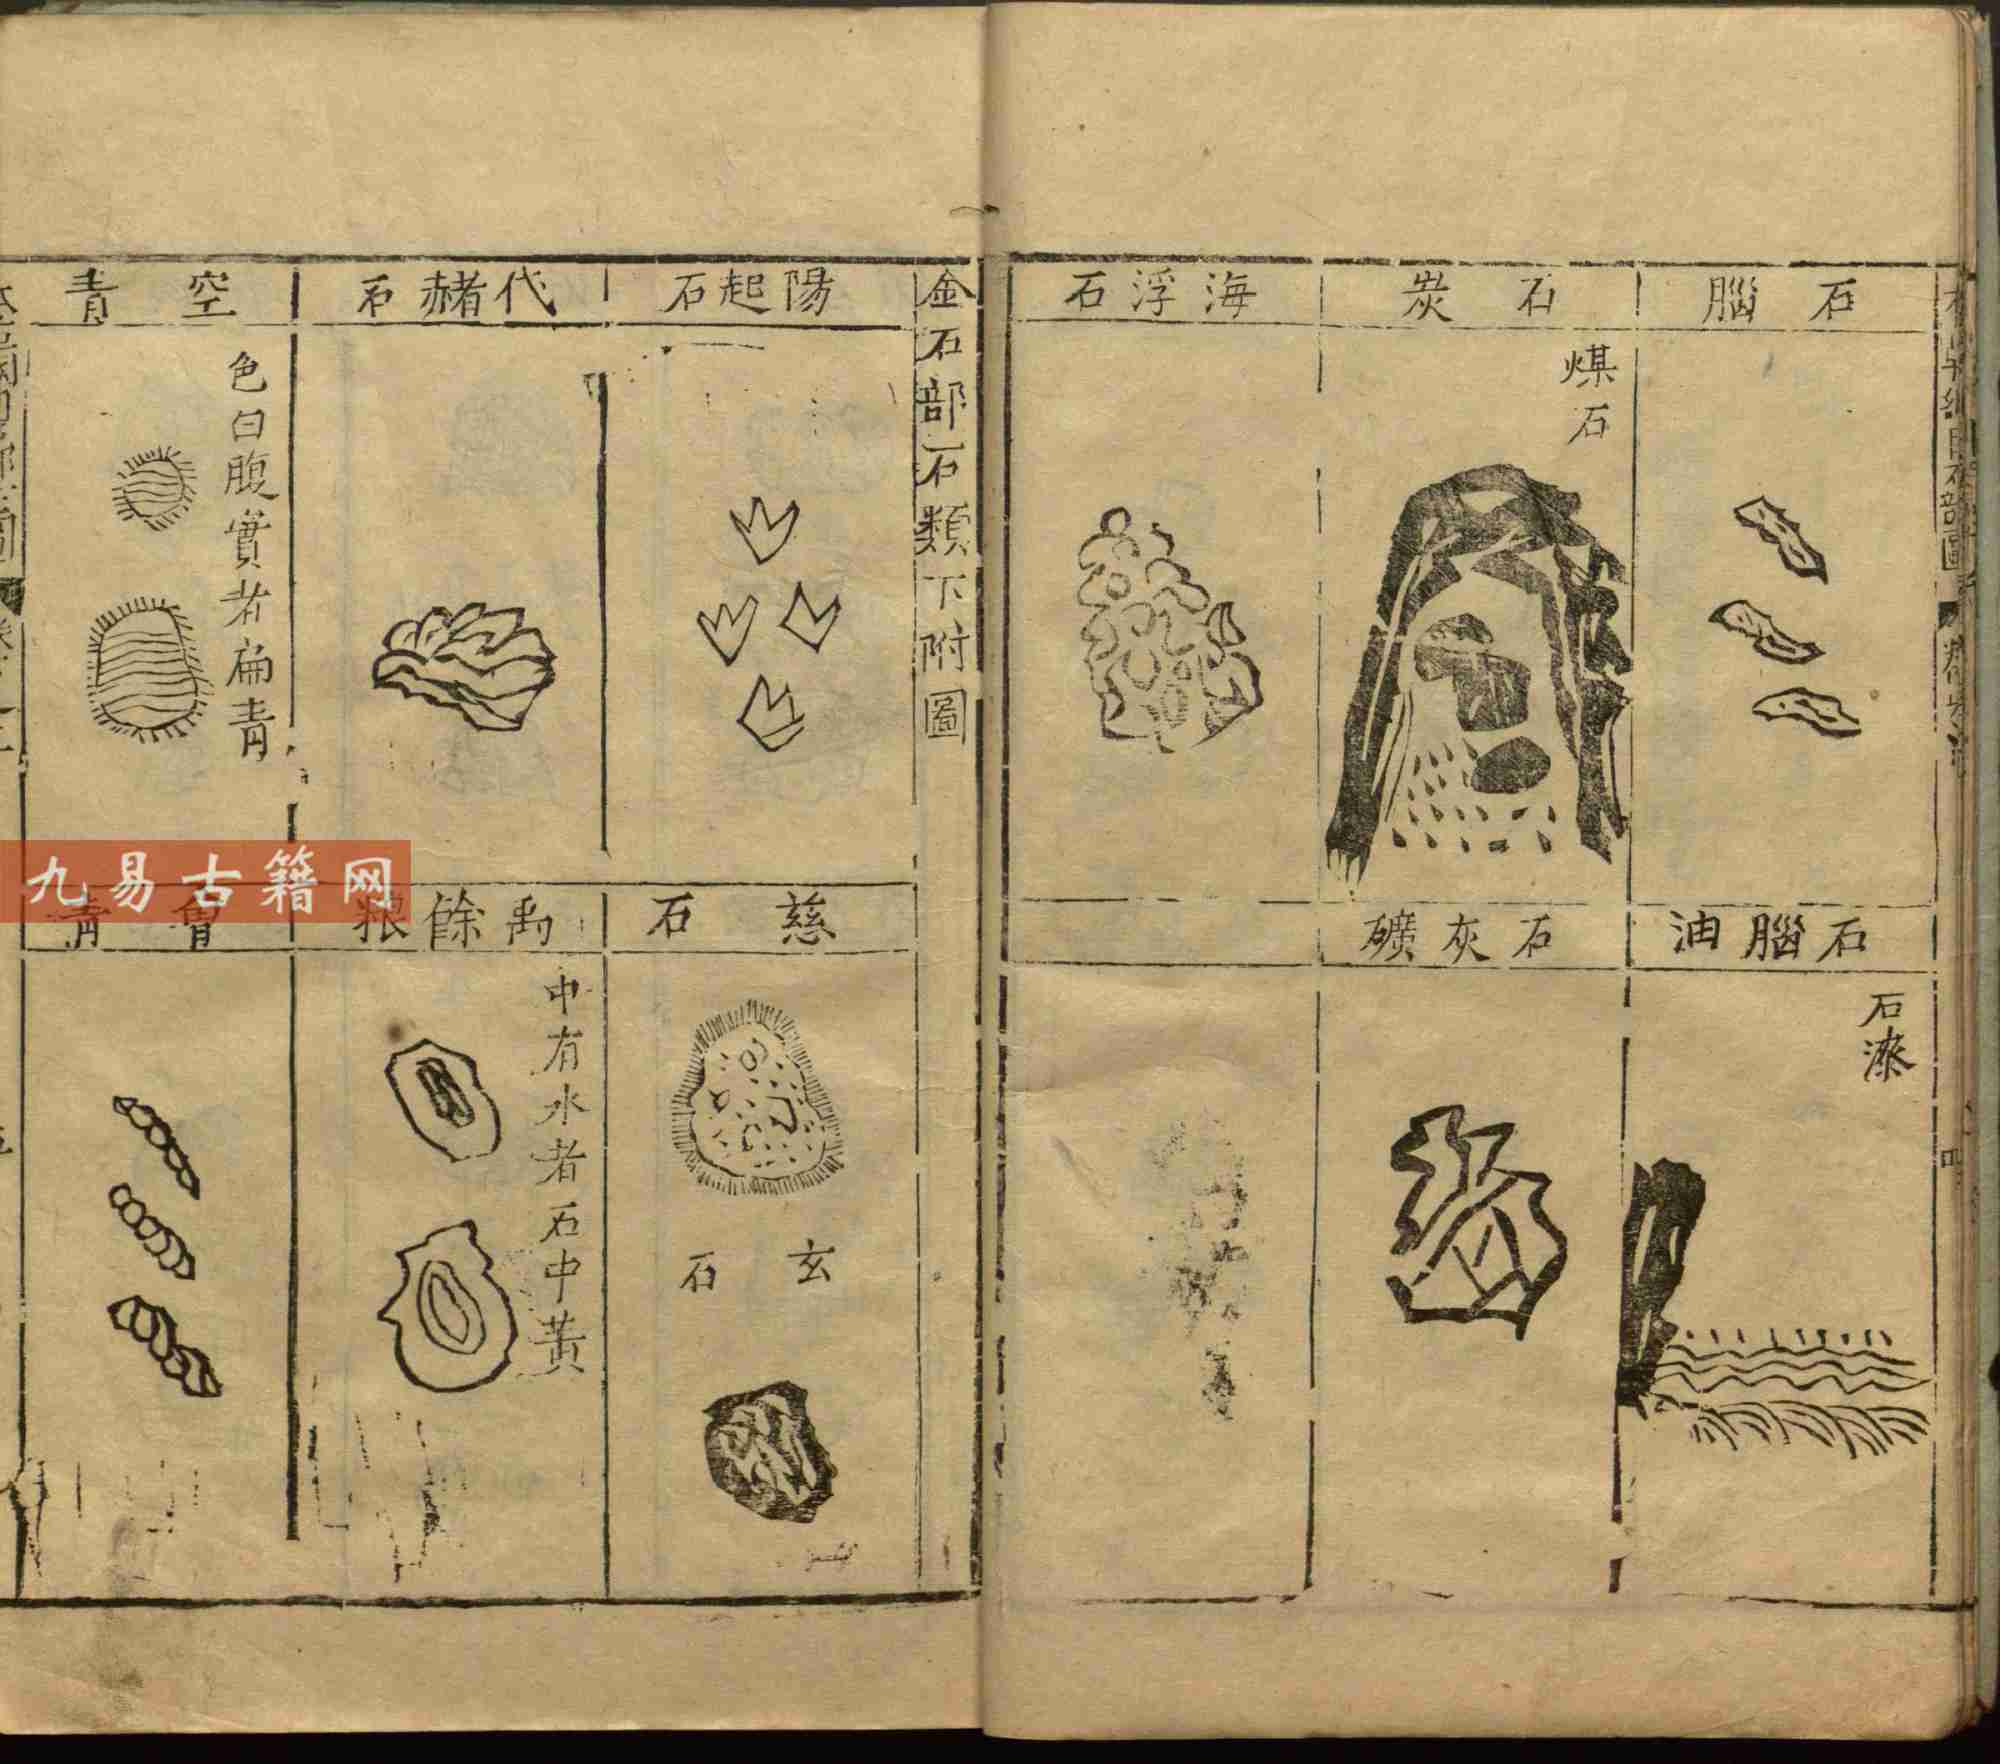 石腦
石炭
煤石
海浮石
石腦油
石漆
石灰礦
金石部石類下附圖
陽起石
代赭石
空青
色白腹實者扁青
慈石
玄石
禹餘粮
中有水者石中黃
曾青
九易古籍网